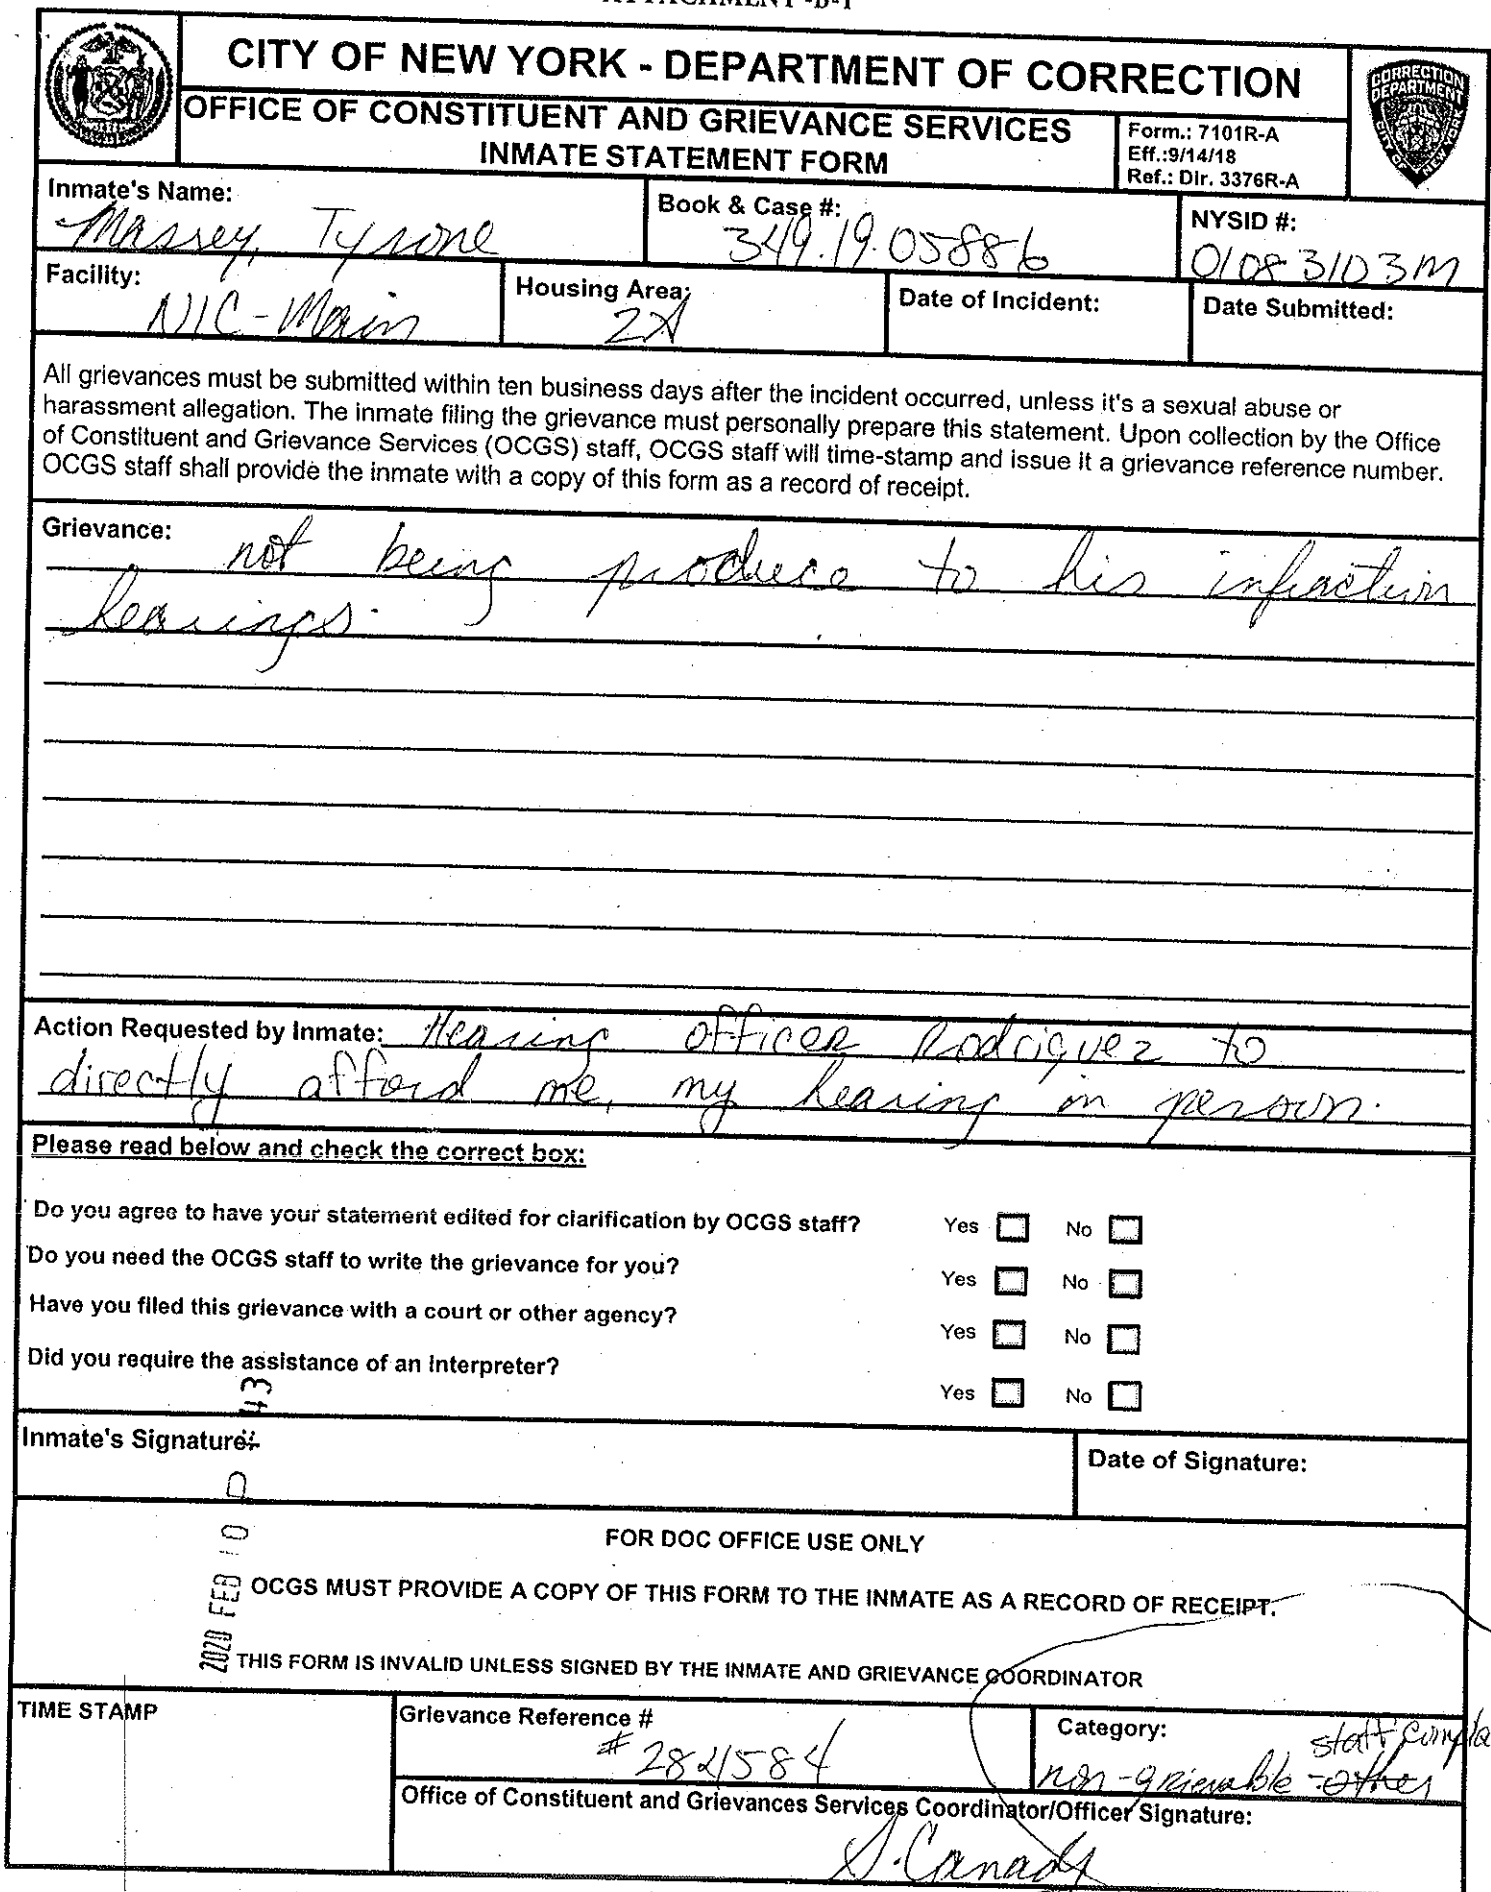 CITY OF NEW YORK - DEPARTMENT OF CORRECTION
OFFICE OF CONSTITUENT AND GRIEVANCE SERVICES
INMATE STATEMENT FORM
Form.: 7101R-A
Eff.:9/14/18
Ref.: Dir. 3376R-A
CORRECTION
DEPARTMENT
CITY OF NEW YORK
Inmate's Name:
Massey, Tyrone
Book & Case #:
349.19.05886
NYSID #:
01083103M
Facility:
NIC-Main
Housing Area:
2A
Date of Incident:
Date Submitted:
All grievances must be submitted within ten business days after the incident occurred, unless it's a sexual abuse or
harassment allegation. The inmate filing the grievance must personally prepare this statement. Upon collection by the Office
of Constituent and Grievance Services (OCGS) staff, OCGS staff will time-stamp and issue it a grievance reference number.
OCGS staff shall provide the inmate with a copy of this form as a record of receipt.
Grievance: not being produce to his infraction
hearings.
Action Requested by Inmate: Hearing officer Rodriguez to
directly afford me, my hearing in person.
Please read below and check the correct box:
Do you agree to have your statement edited for clarification by OCGS staff? Yes No
Do you need the OCGS staff to write the grievance for you? Yes No
Have you filed this grievance with a court or other agency? Yes No
Did you require the assistance of an interpreter? Yes No
Inmate's Signature:
Date of Signature:
2020 FEB 10
FOR DOC OFFICE USE ONLY
OCGS MUST PROVIDE A COPY OF THIS FORM TO THE INMATE AS A RECORD OF RECEIPT.
THIS FORM IS INVALID UNLESS SIGNED BY THE INMATE AND GRIEVANCE COORDINATOR
TIME STAMP
Grievance Reference #
Category:
staff
non-grievable -other
Office of Constituent and Grievances Services Coordinator/Officer Signature:
S. Canady